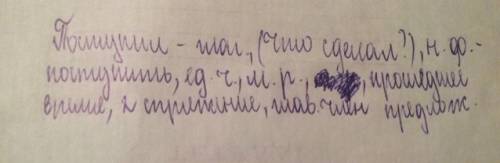 Поступил - глаг., (Что сделал?), н. ф. -
поступить, ед. ч., м. р., прошедшее
время, 2 спряжение, глав. член предлож.